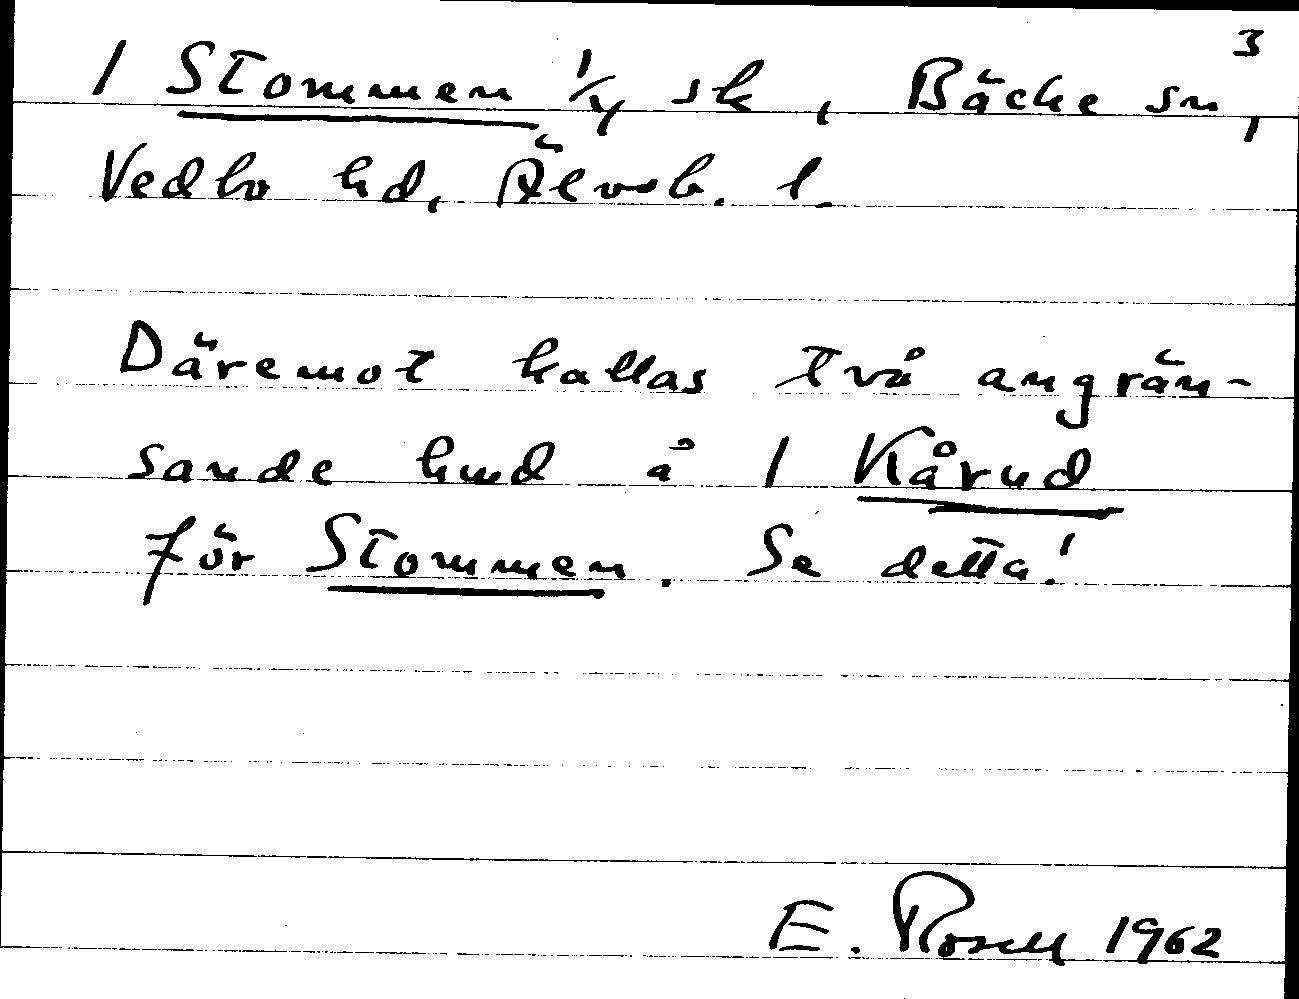 3
1 Stommen 1/4 sk, Bäcke sn,
Vedbo hd, Älvsb. l.
Däremot kallas två angrän-
sande hmd å 1 Kårud
för Stommen. Se detta!
E. Rosell 1962